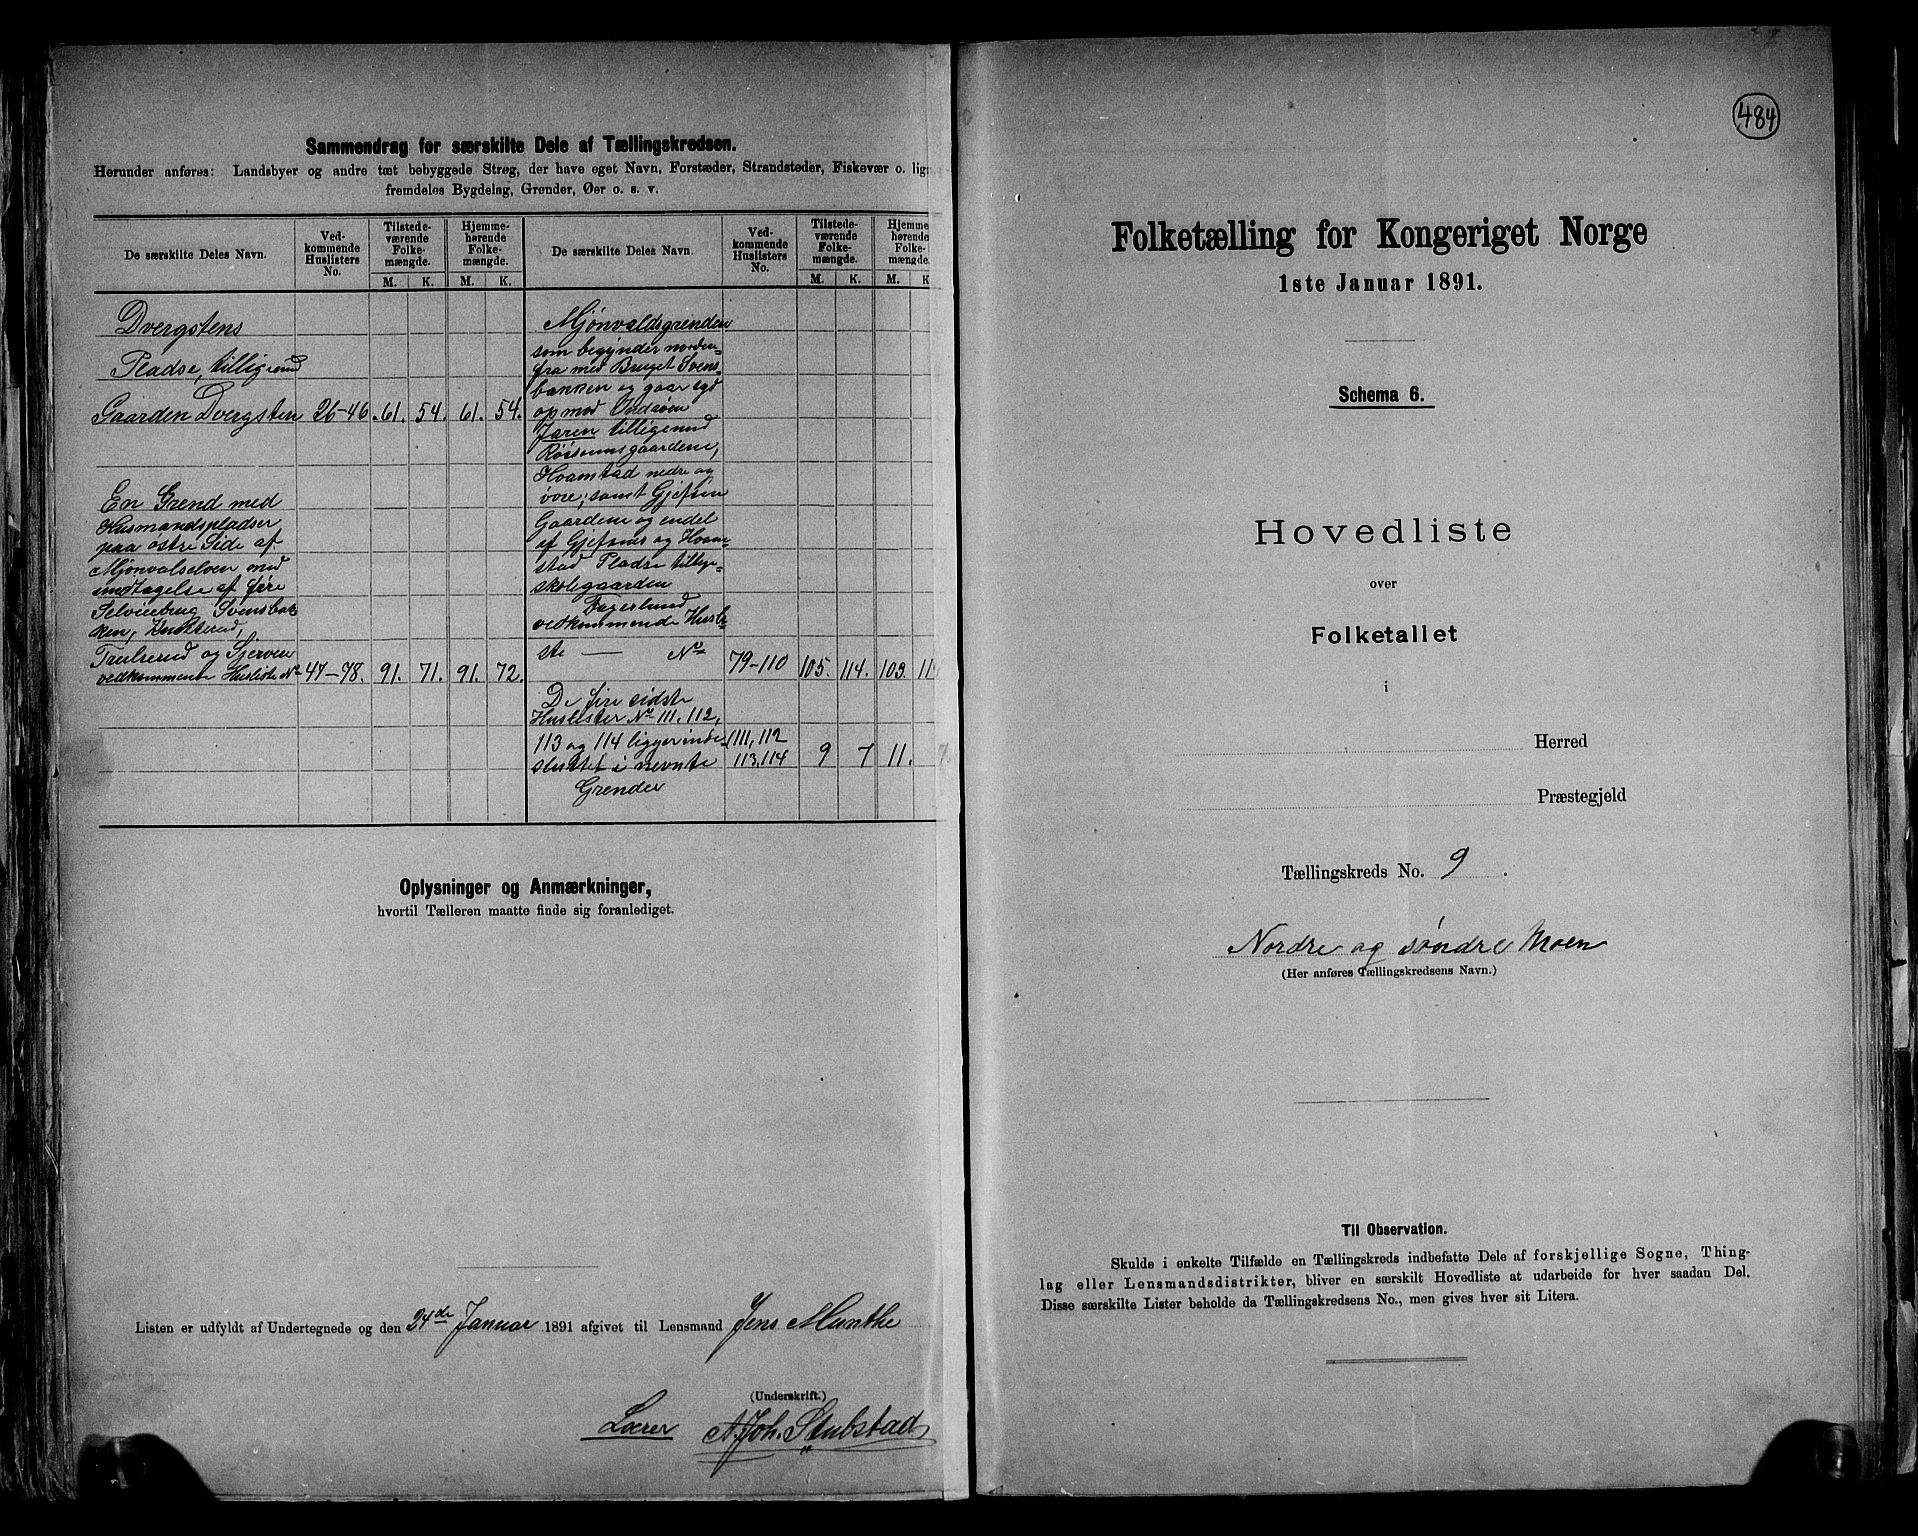 Sammendrag for særskilte Dele af Tællingskredsen.
Herunder anføres: Landsbyer og andre tæt bebyggede Strøg, der have eget Navn, Forstæder, Strandsteder, Fiskevær o. lign
fremdeles Bygdelag, Grender, Øer o. s. v.
De særskilte Deles Navn.
Ved-
kommende
Huslisters
No.
Tilstede-
værende
Folke-
mængde.
M. K.
Hjemme-
hørende
Folke-
mængde.
M. K.
De særskilte Deles Navn
Ved-
kommende
Huslisters
No.
Tilstede-
værende
Folke-
mængde.
M. K.
Hjemme
hørende
Folke-
mængde.
M. K
Dvergstens
Pladse, tilligemed
Gaarden Dvergsten 26-46 61. 54. 61. 54.
En Grend med
Husmandspladser
paa østre Side af
Mjønvalselven med
indtagelse af fire
Selveiebrug, Svensbak
ken,
Trulserud og Sjerven
vedkommende Husliste No 47-78. 91. 71. 91. 72.
Mjønvaldsgrenden
som begynder norden-
fra med Bruget Svens-
bakken og gaar syd
op mod Indsøen
Jaren tilligemed
Røisumsgaardene,
Hvamstad nedre og
øvre, samt Gjefsen
Gaardene og endel
af Gjefsens og Hvam-
stad Pladse tillige-
skolegaarden
Fagerlund
vedkommende Husli-
ste — No 79-110 105. 114. 103. 11
De fire sidste
Huslister No 111, 112,
113 og 114 ligger inde- 111, 112
sluttet i nevnte 113, 114 9 7 11. 7
Grender
Oplysninger og Anmærkninger,
hvortil Tælleren maatte finde sig foranlediget.
Listen er udfyldt af Undertegnede og den 24de Januar 1891 afgivet til Lensmand Jens Munthe
(Underskrift.)
Lærer A. Joh. Stubstad
484
Folketælling for Kongeriget Norge
1ste Januar 1891.
Schema 6.
Hovedliste
over
Folketallet
i
Herred
Præstegjeld
Tællingskreds No. 9.
Nordre og søndre Moen
(Her anføres Tællingskredsens Navn.)
Til Observation.
Skulde i enkelte Tilfælde en Tællingskreds indbefatte Dele af forskjellige Sogne, Thing-
lag eller Lensmandsdistrikter, bliver en særskilt Hovedliste at udarbeide for hver saadan Del.
Disse særskilte Lister beholde da Tællingskredsens No., men gives hver sit Litera.